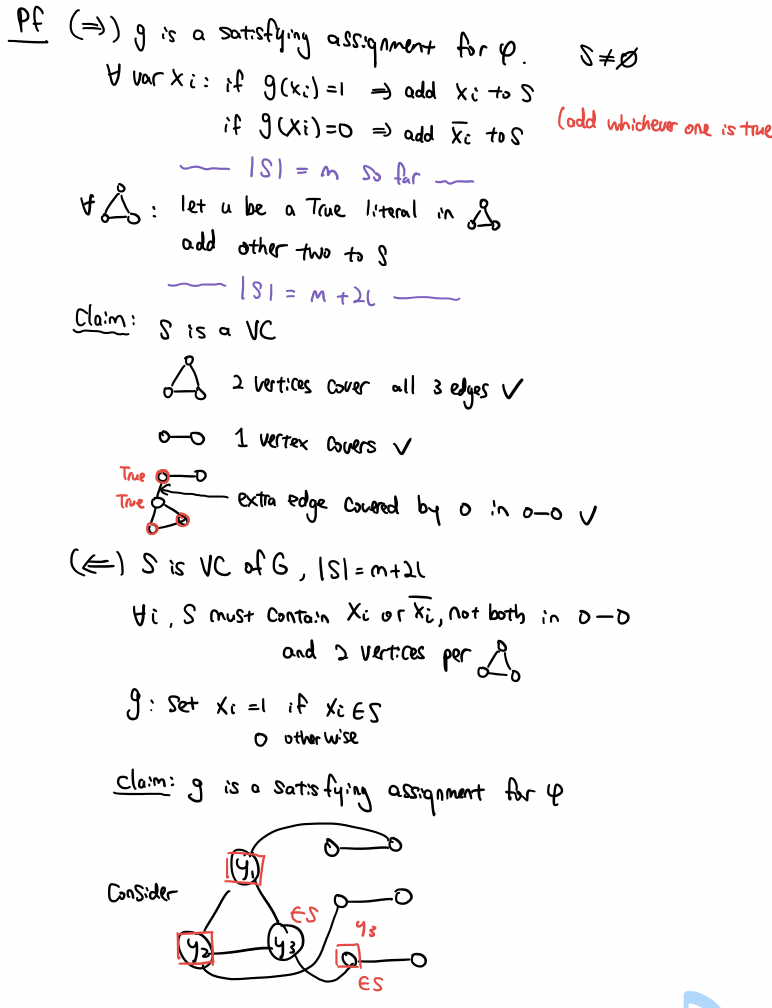 Pf (⇒) g is a satisfying assignment for φ. S≠∅
∀ var xi: if g(xi)=1 ⇒ add xi to S
if g(xi)=0 ⇒ add x̅i to S (add whichever one is true
|S| = m so far
∀ : let u be a True literal in
add other two to S
|S| = m+2l
Claim: S is a VC
2 vertices cover all 3 edges ✓
1 vertex covers ✓
True
True extra edge covered by o in o-o ✓
(⇐) S is VC of G, |S|=m+2l
∀i, S must contain xi or x̅i, not both in o-o
and 2 vertices per
g: set xi=1 if xi∈S
0 otherwise
claim: g is a satisfying assignment for φ
y1
Consider
∈S
y3
y2 y3
∈S